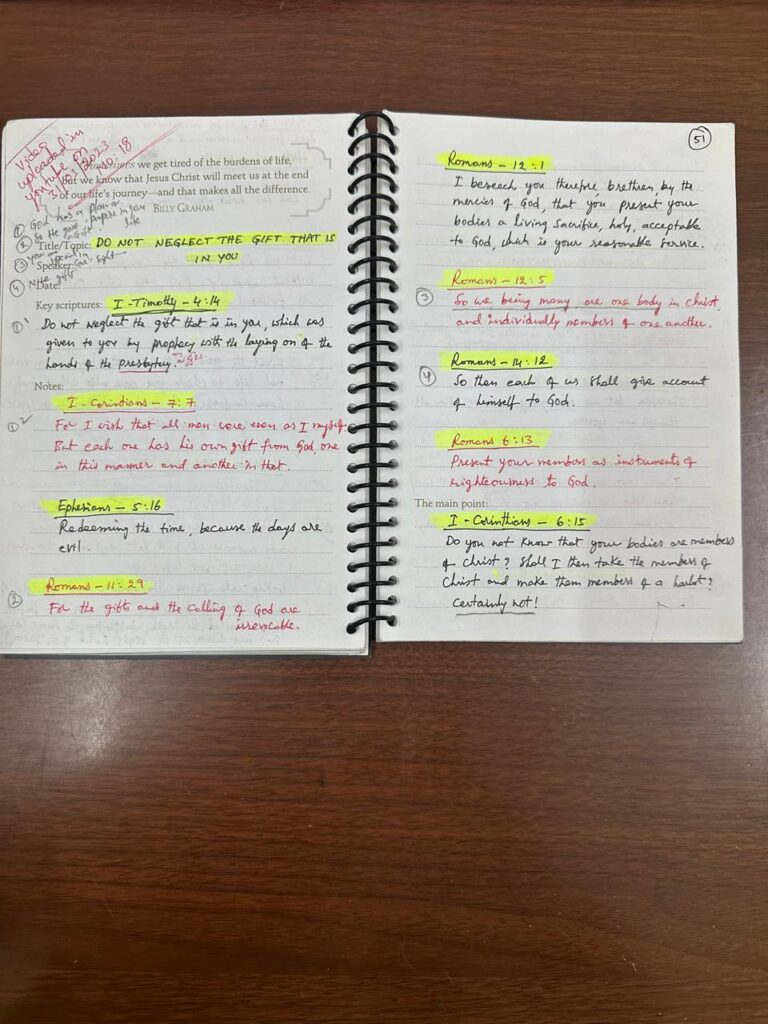 Video
uploaded in
youtube on
2023
20:18
we get tired of the burdens of life,
but we know that Jesus Christ will meet us at the end
of our life's journey—and that makes all the difference.
BILLY GRAHAM
① God has a plan &
purpose in your
life
② So He gave
a gift
Title/Topic: DO NOT NEGLECT THE GIFT THAT IS
IN YOU
③ You are special in
God's sight
Speaker:
④ Date:
Key scriptures: I - Timothy - 4:14
①1 Do not neglect the gift that is in you, which was
given to you by prophecy with the laying on of the
hands of the presbytery.
Notes:
I - Corintians - 7:7
①2 For I wish that all men were even as I myself
But each one has his own gift from God, one
in this manner and another in that.
Ephesians - 5:16
Redeeming the time, because the days are
evil.
Romans - 11:29
② For the gifts and the calling of God are
irrevocable.
51
Romans - 12:1
I beseech you therefore, brethren, by the
mercies of God, that you present your
bodies a living sacrifice, holy, acceptable
to God, which is your reasonable service.
Romans - 12:5
③ So we being many are one body in christ,
and individually members of one another.
Romans - 14:12
④ So then each of us shall give account
of himself to God.
Romans 6:13
Present your members as instruments of
righteousness to God.
The main point:
I - Corinthians - 6:15
Do you not know that your bodies are members
of Christ? Shall I then take the members of
Christ and make them members of a harlot?
Certainly not!